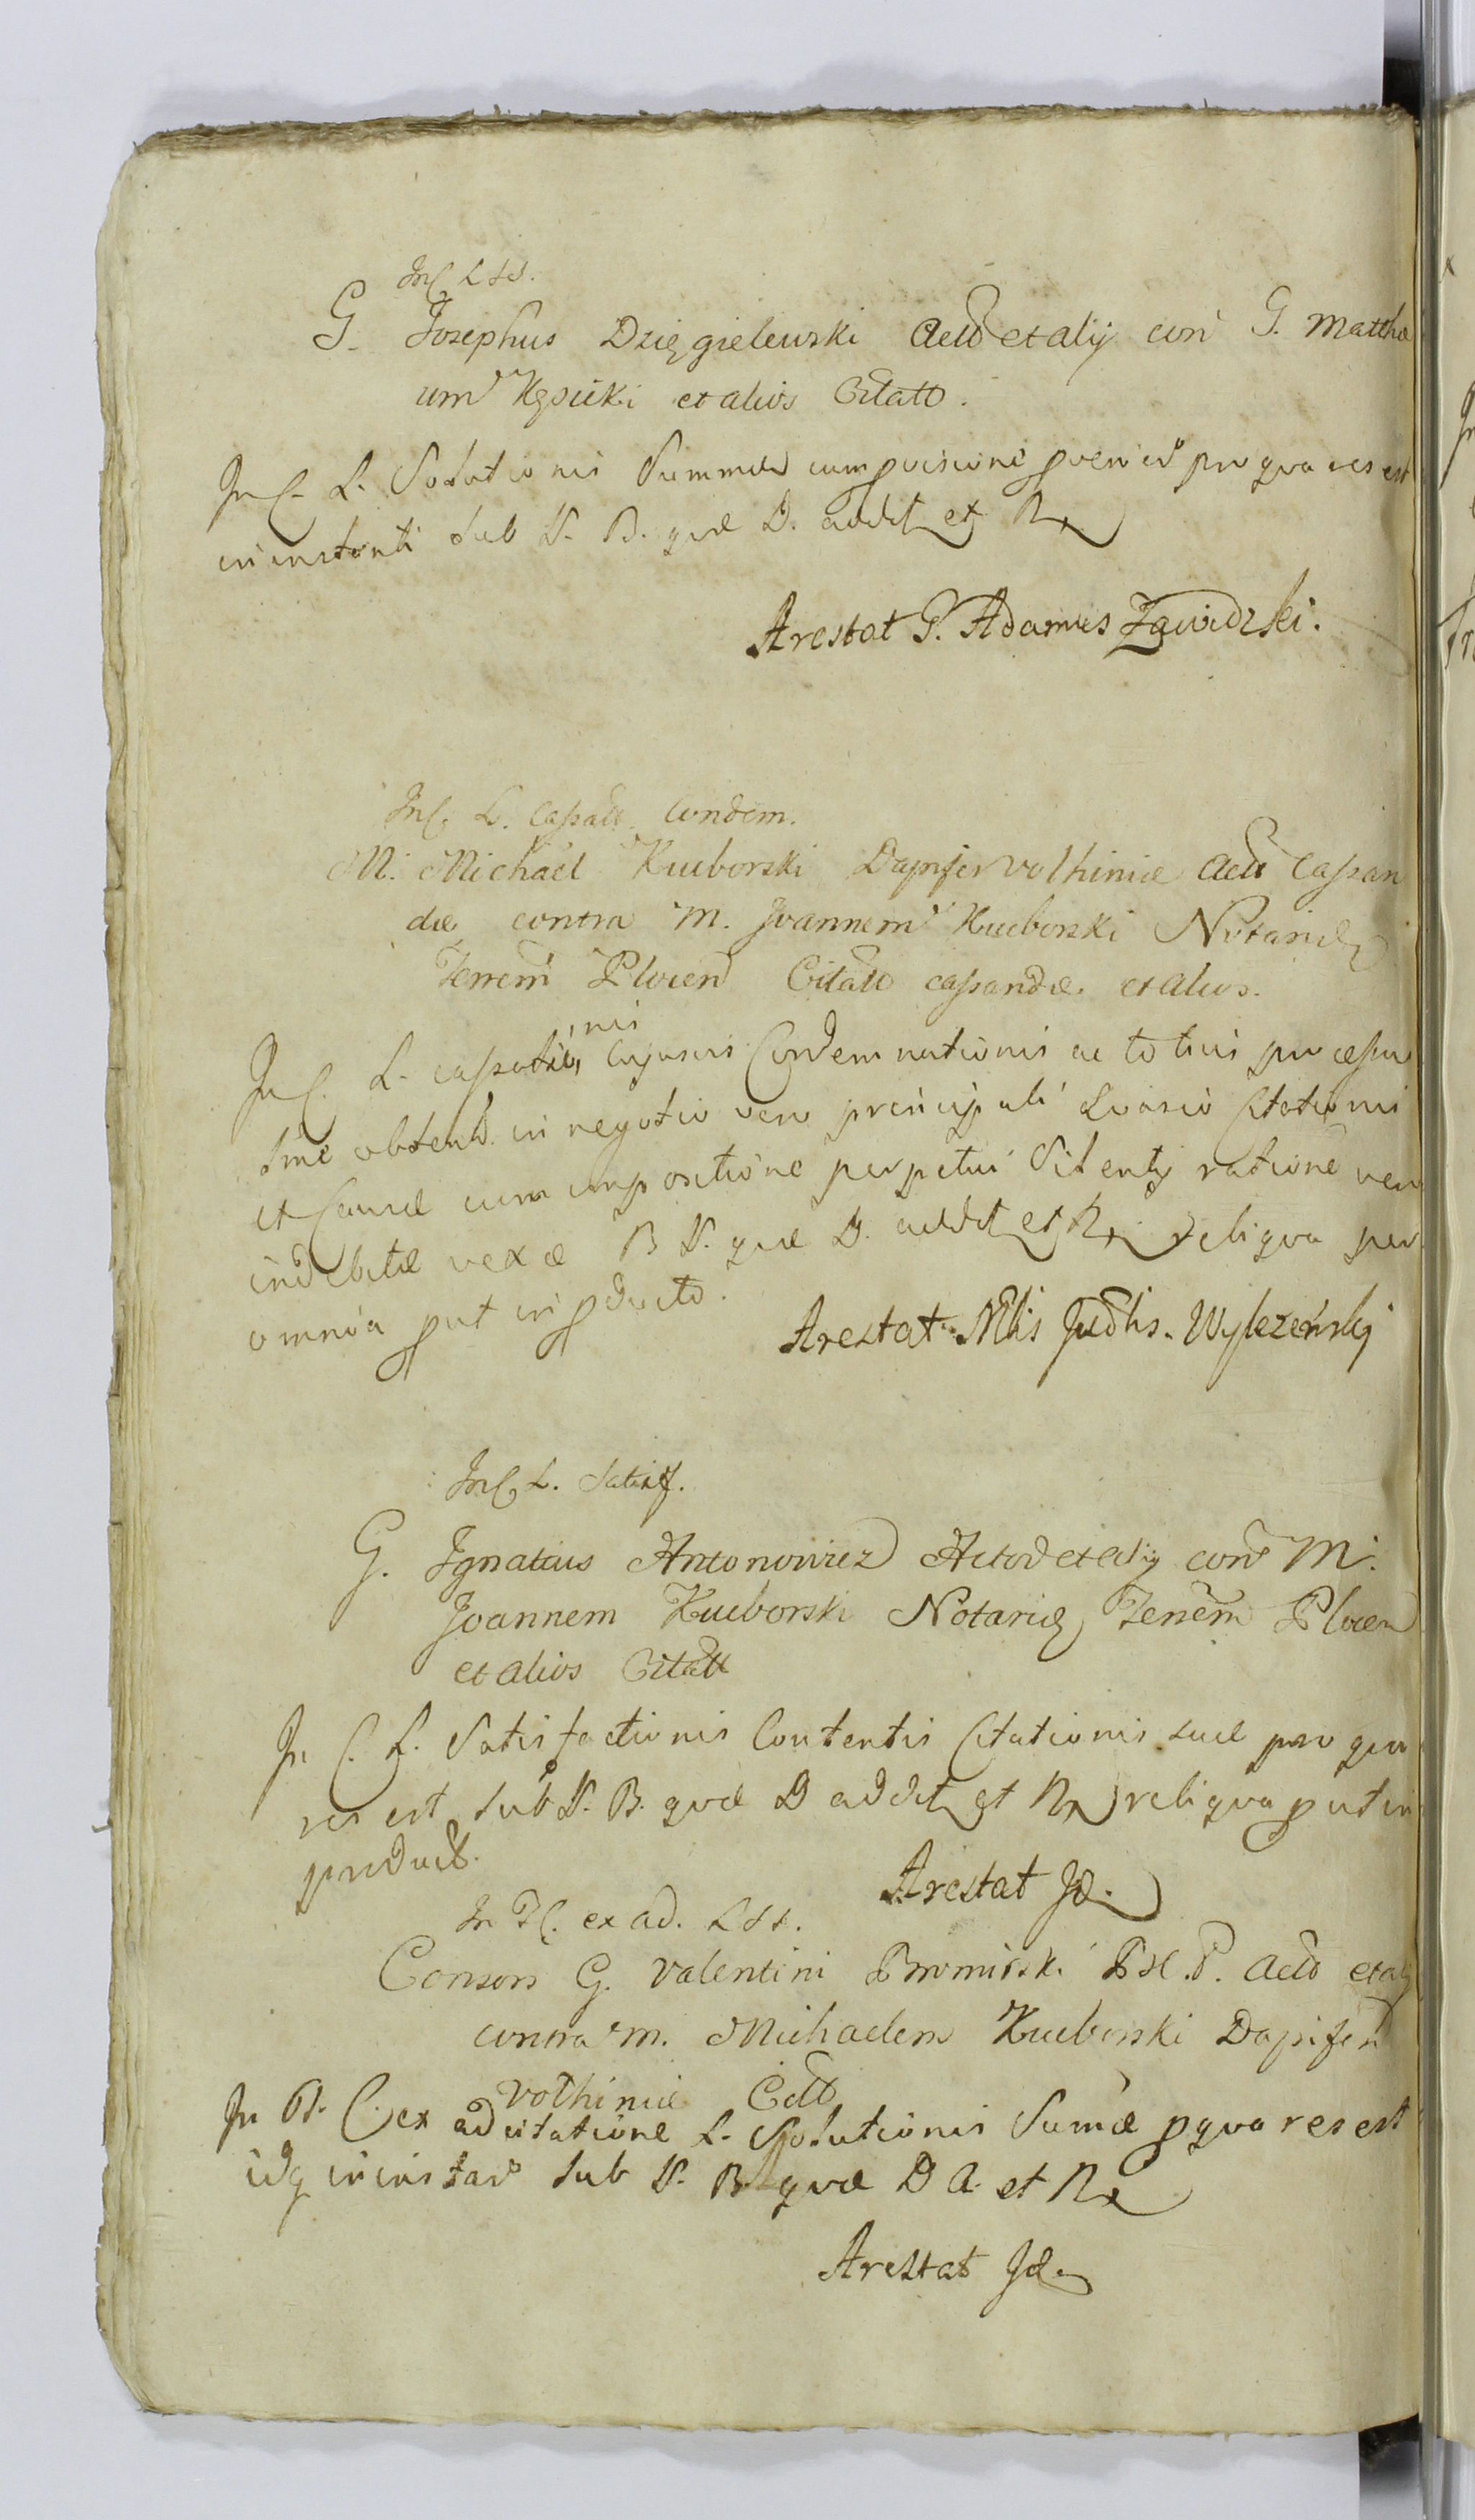 In C. L. S.
G. Josephus Dzięgielewski Acto et alij con G. Matthæ
um Kęsicki et alios Citato.
In C. L. Solutionis Summæ cum provisione proveniᵈ pro qua res est
in instanti sub S. B. quæ D. addet et Rx
Arestat G. Adamus Zawidzki.
In C. L. Cassatt. Condem.
M. Michael Kucborski Dapifer Volhiniæ Acto Cassan
dæ contra M. Joannem Kucborski Notariũ
Terrem Plocen Citato cassandæ et alios.
In C. L. cassationis cujusvis Condemnationis ac totius processus
sine obtent. in negotio vero principali Evasio Citationis
et Causæ cum impositione perpetui Silentij ratione vero
indebitæ vexæ B S. quæ D. addet et Rx reliqua per
omnia put in pducto.
Arestat Nblis Judlis. Wyleżeński
In C. L. Satisf.
G. Ignatius Antonowicz Acto et alij con M.
Joannem Kucborski Notariũ Terrem Plocen
et alios Citatt
In C. L. Satisfactionis Contentis Citationis suæ pro qua
res est sub S. B. quæ D addet et Rx reliqua put in
product.
Arestat Id.
In T. C. ex ad. L S s.
Consors G. Valentini Bromirski P. N. P. Acto et alij
contra M. Michaelem Kucborski Dapiferũ
Volhiniæ Citto
In T. C. ex adcitatione L. Solutionis Sumæ p qua res est
idq in instan sub S. B. quæ D A. et Rx
Arestat Id.